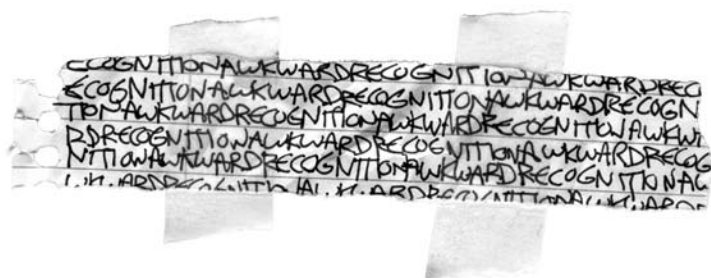 ECOGNITIONAWKWARDRECOGNITIONAWKWARDREC
ECOGNITIONAWKWARDRECOGNITIONAWKWARDRECOGN
TIONAWKWARDRECOGNITIONAWKWARDRECOGNITIONAWKW
RDRECOGNITIONAWKWARDRECOGNITIONAWKWARDRECOG
NITIONAWKWARDRECOGNITIONAWKWARDRECOGNITIONAW
WKWARDRECOGNITIONAWKWARDRECOGNITIONAWKWARD